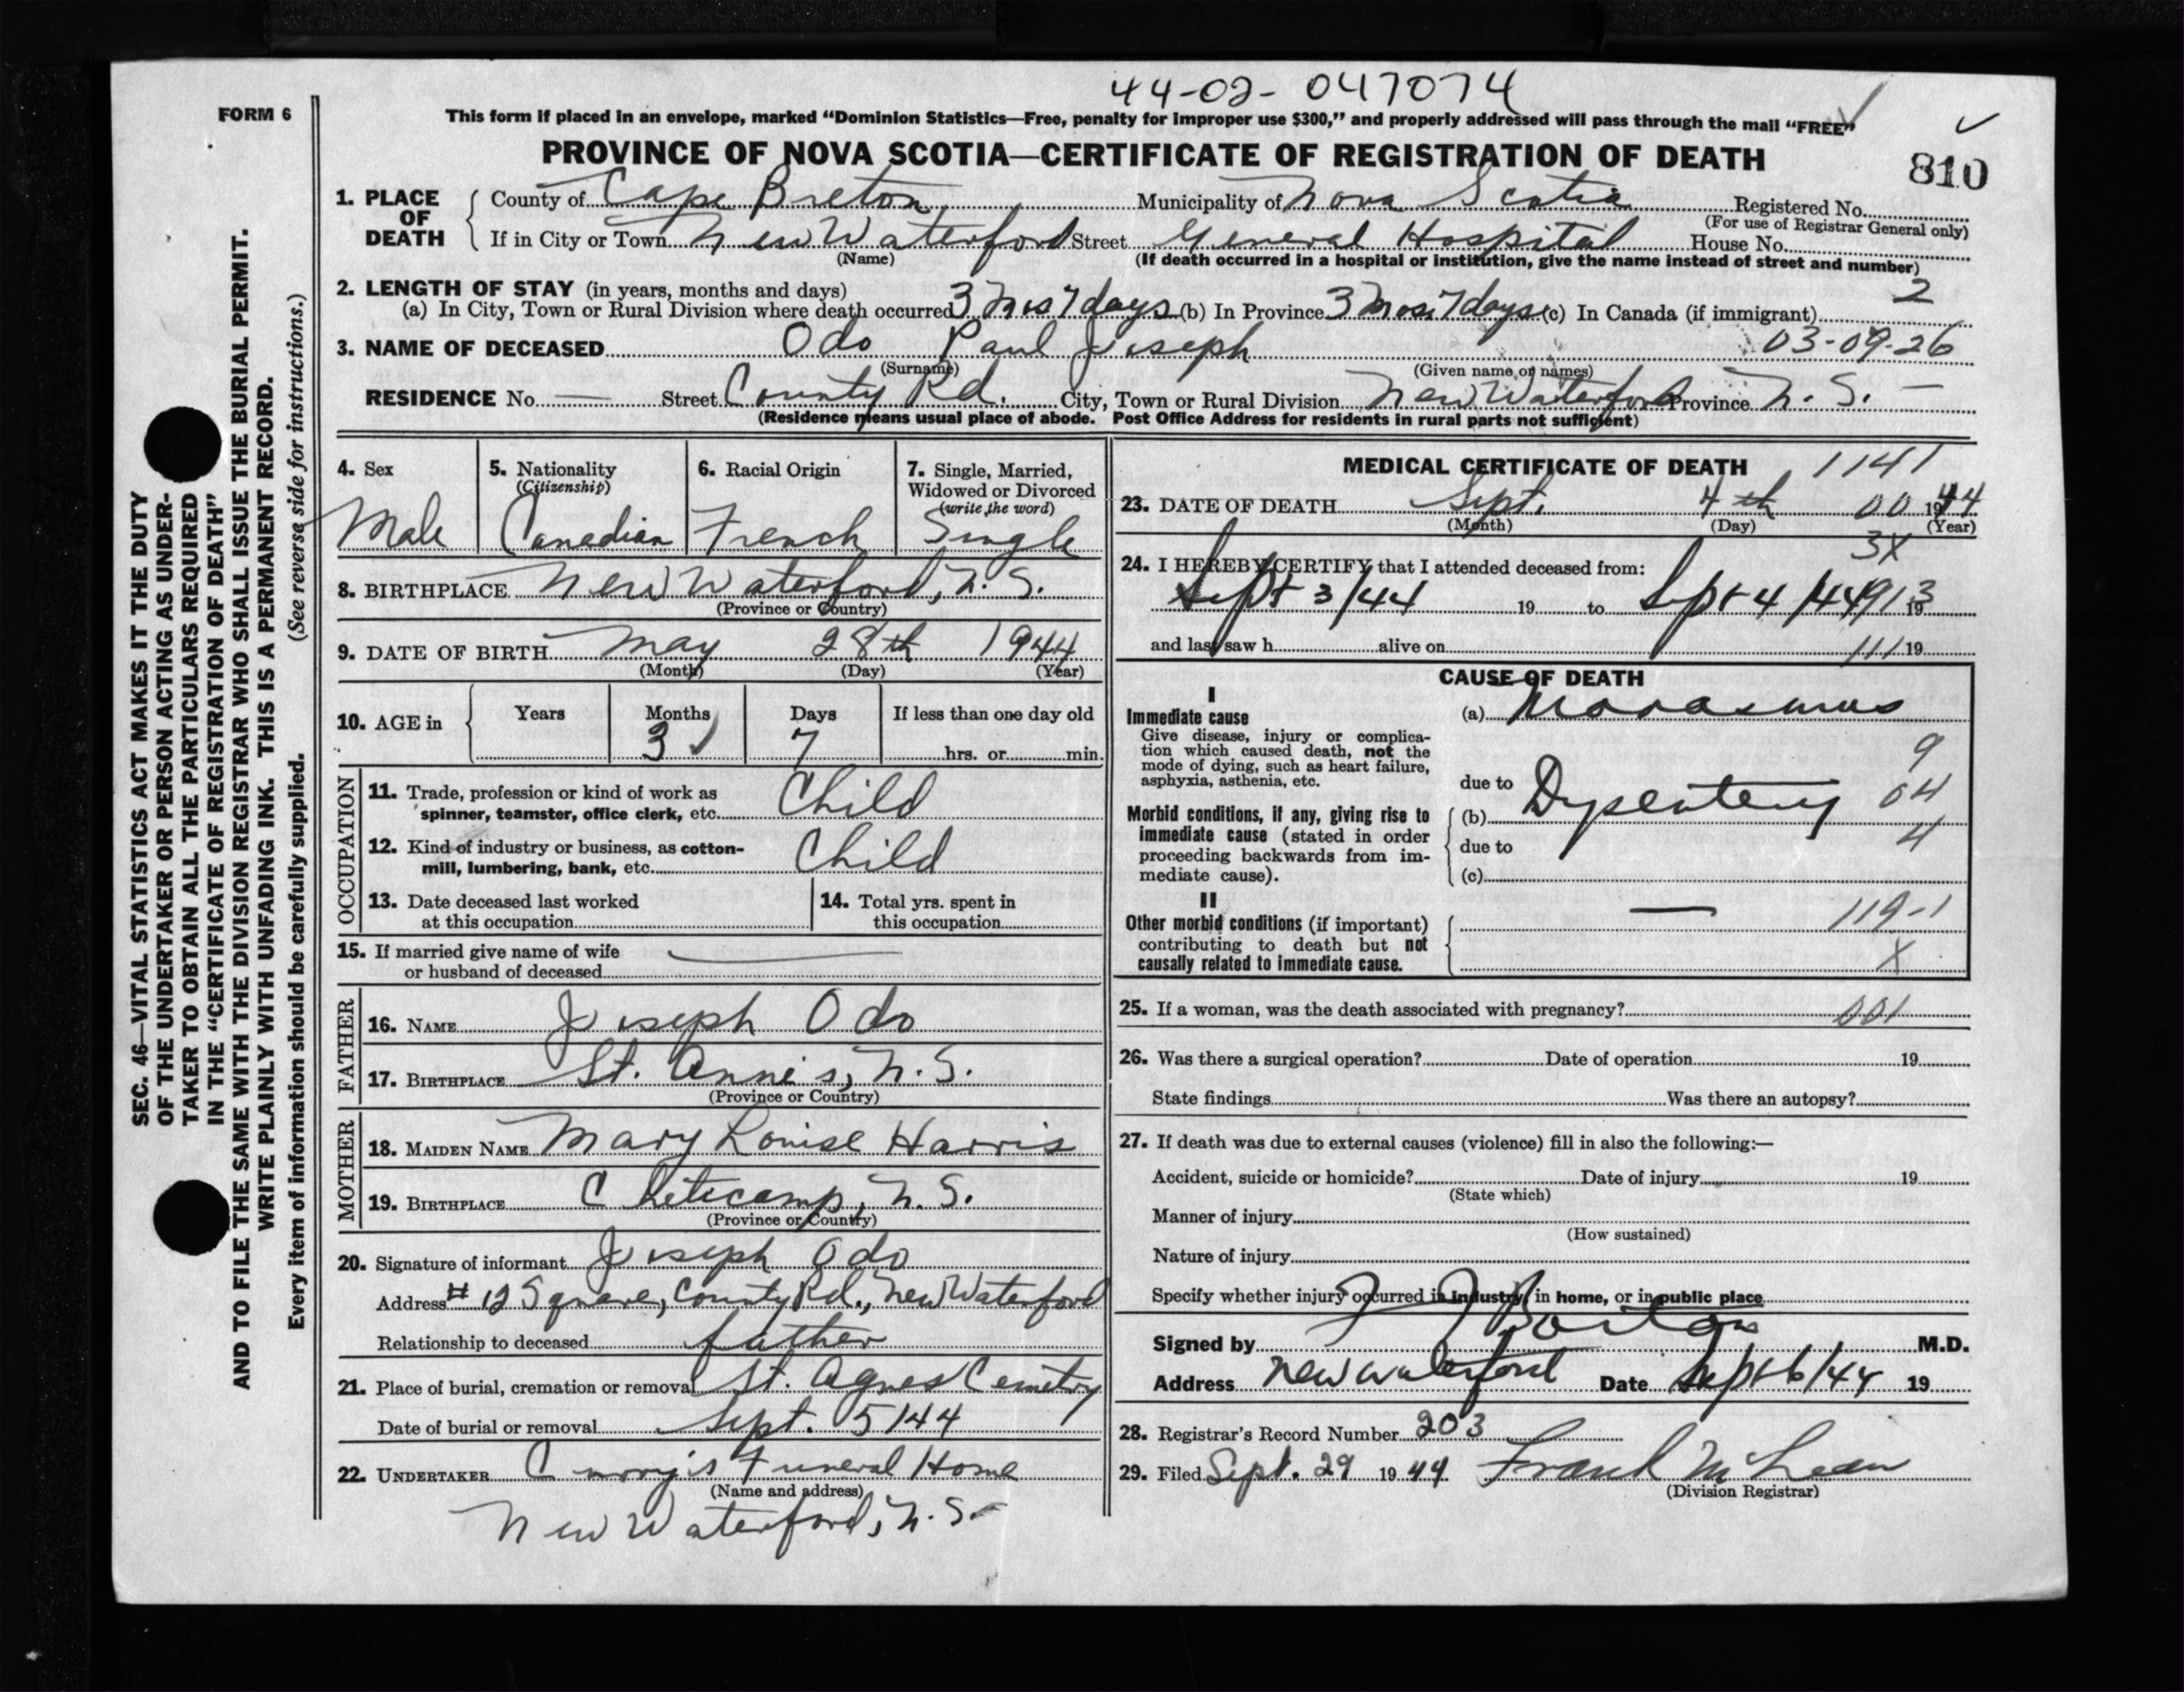 44-02- 047074
FORM 6
This form if placed in an envelope, marked “Dominion Statistics—Free, penalty for improper use $300,” and properly addressed will pass through the mail “FREE”
PROVINCE OF NOVA SCOTIA—CERTIFICATE OF REGISTRATION OF DEATH
810
1. PLACE OF DEATH { County of Cape Breton Municipality of Nova Scotia Registered No.
(For use of Registrar General only)
If in City or Town New Waterford Street General Hospital House No.
(Name) (If death occurred in a hospital or institution, give the name instead of street and number)
2. LENGTH OF STAY (in years, months and days) 2
(a) In City, Town or Rural Division where death occurred 3 Mos 7 days (b) In Province 3 Mos. 7 days (c) In Canada (if immigrant)
3. NAME OF DECEASED Odo Paul Joseph 03-09-26
(Surname) (Given name or names)
RESIDENCE No. — Street County Rd. City, Town or Rural Division New Waterford Province N. S. —
(Residence means usual place of abode. Post Office Address for residents in rural parts not sufficient)
4. Sex
Male
5. Nationality
(Citizenship)
Canadian
6. Racial Origin
French
7. Single, Married,
Widowed or Divorced
(write the word)
Single
8. BIRTHPLACE New Waterford, N. S.
(Province or Country)
9. DATE OF BIRTH May 28th 1944
(Month) (Day) (Year)
10. AGE in { Years Months Days If less than one day old
3 7 hrs. or min.
OCCUPATION
11. Trade, profession or kind of work as
spinner, teamster, office clerk, etc. Child
12. Kind of industry or business, as cotton-
mill, lumbering, bank, etc. Child
13. Date deceased last worked
at this occupation
14. Total yrs. spent in
this occupation
15. If married give name of wife
or husband of deceased
FATHER
16. NAME Joseph Odo
17. BIRTHPLACE St. Anne's, N. S.
(Province or Country)
MOTHER
18. MAIDEN NAME Mary Louise Harris
19. BIRTHPLACE Cheticamp, N. S.
(Province or Country)
20. Signature of informant Joseph Odo
Address # 12 Square, County Rd., New Waterford
Relationship to deceased father
21. Place of burial, cremation or removal St. Agnes Cemetry
Date of burial or removal Sept. 5/44
22. UNDERTAKER Funeral Home
(Name and address)
New Waterford, N. S.
MEDICAL CERTIFICATE OF DEATH 1141
23. DATE OF DEATH Sept. 4th 00 1944
(Month) (Day) (Year)
3X
24. I HEREBY CERTIFY that I attended deceased from:
Sept 3/44 19 to Sept 4/44 913 19
and last saw h alive on 111 19
CAUSE OF DEATH
I
Immediate cause
Give disease, injury or complica-
tion which caused death, not the
mode of dying, such as heart failure,
asphyxia, asthenia, etc.
(a) Marasmus
9
due to
Morbid conditions, if any, giving rise to
immediate cause (stated in order
proceeding backwards from im-
mediate cause).
(b) Dysentery 04
due to 4
(c)
II
Other morbid conditions (if important)
contributing to death but not
causally related to immediate cause.
— 119-1
X
25. If a woman, was the death associated with pregnancy? 001
26. Was there a surgical operation? Date of operation 19
State findings Was there an autopsy?
27. If death was due to external causes (violence) fill in also the following:—
Accident, suicide or homicide? Date of injury 19
(State which)
Manner of injury
(How sustained)
Nature of injury
Specify whether injury occurred in industry, in home, or in public place
Signed by M.D.
Address New Waterford Date Sept 6/44 19
28. Registrar's Record Number 203
29. Filed Sept. 29 1944 Frank McLean
(Division Registrar)
SEC. 46—VITAL STATISTICS ACT MAKES IT THE DUTY
OF THE UNDERTAKER OR PERSON ACTING AS UNDER-
TAKER TO OBTAIN ALL THE PARTICULARS REQUIRED
IN THE “CERTIFICATE OF REGISTRATION OF DEATH”
AND TO FILE THE SAME WITH THE DIVISION REGISTRAR WHO SHALL ISSUE THE BURIAL PERMIT.
WRITE PLAINLY WITH UNFADING INK. THIS IS A PERMANENT RECORD.
Every item of information should be carefully supplied. (See reverse side for instructions.)